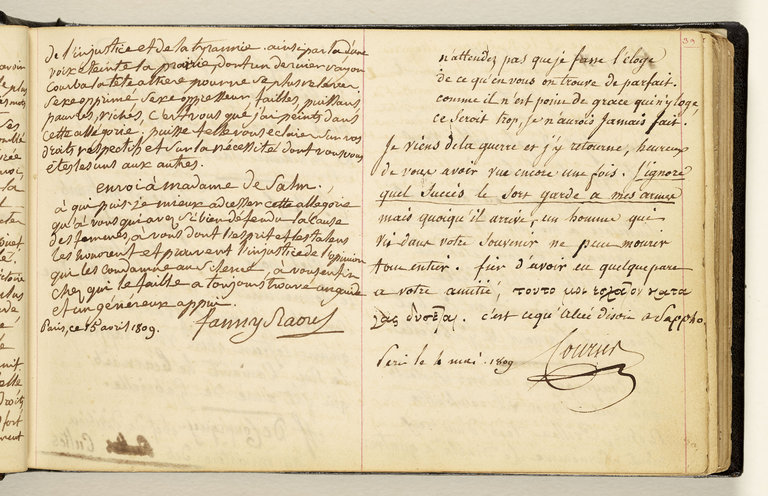 de l'injustice et de la tyrannie. ainsi par la d'une
voix éteinte la prairie dont un dernier rayon
courba la tête altière pour ne se plus relever.
Sexe opprimé Sexe oppresseur, faibles, puissans
pauvres, riches, c'est vous que j'ai peints dans
cette allégorie, puisse t'elle vous éclairer sur vos
droits respectifs et sur la nécessité dont vous vous
êtes les uns aux autres.
envoi à madame de Salm.
à qui puis-je mieux adresser cette allégorie
qu'à vous qui avez si bien défendu la cause
des femmes, à vous dont l'esprit et les talens
les honorent et prouvent l'injustice de l'opinion
qui les condamne au silence, à vous enfin
chez qui le faible a toujours trouvé un guide
et un généreux appui.
Paris, ce 15 avril 1809. fanny Raoul
39
n'attendez pas que je fasse l'éloge
de ce qu'en vous on trouve de parfait.
comme il n'est point de grace qui n'y loge,
ce seroit trop, je n'aurois jamais fait.
Je viens de la guerre et j'y retourne, heureux
de vous avoir vue encore une fois. J'ignore
quel succès le sort garde a mes armes
mais quoiqu'il arrive, un homme qui
vit dans votre souvenir ne peut mourir
tout entier. fier d'avoir eu quelque part
a votre amitié, τουτο μοι
c'est ce qu'Alcée disoit a Sappho.
Paris le 4 mai. 1809 Courier